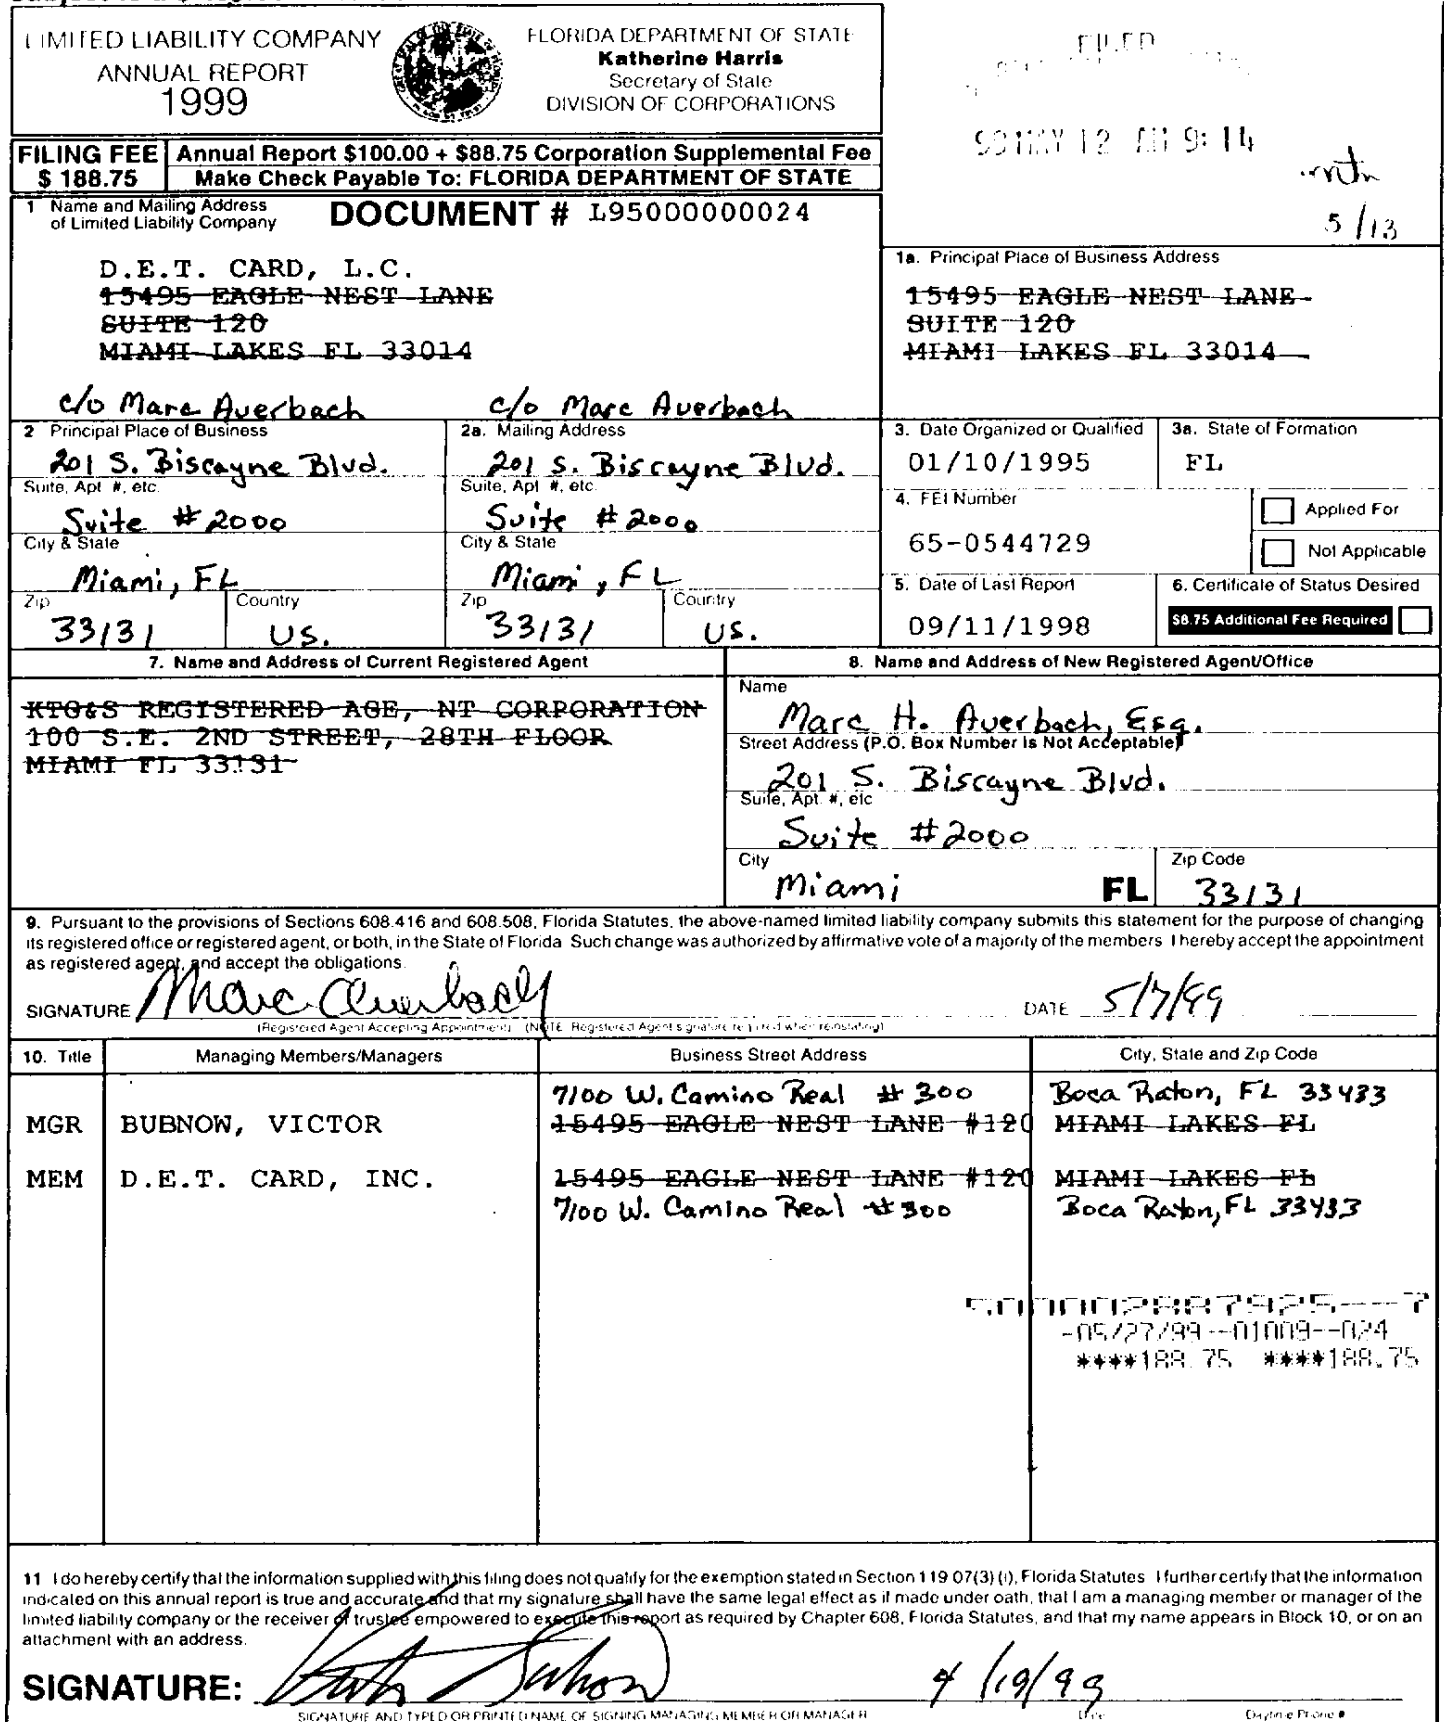 LIMITED LIABILITY COMPANY
ANNUAL REPORT
1999
FLORIDA DEPARTMENT OF STATE
Katherine Harris
Secretary of State
DIVISION OF CORPORATIONS
FILED
99 MAY 12 AM 9:14
5/13
FILING FEE
$ 188.75
Annual Report $100.00 + $88.75 Corporation Supplemental Fee
Make Check Payable To: FLORIDA DEPARTMENT OF STATE
1 Name and Mailing Address
of Limited Liability Company
DOCUMENT # L95000000024
D.E.T. CARD, L.C.
15495 EAGLE NEST LANE
SUITE 120
MIAMI LAKES FL 33014
1a. Principal Place of Business Address
15495 EAGLE NEST LANE
SUITE 120
MIAMI LAKES FL 33014
c/o Marc Averbach
c/o Marc Averbach
2 Principal Place of Business
201 S. Biscayne Blvd.
Suite, Apt. #, etc.
Suite #2000
City & State
Miami, FL
Zip
33131
Country
US.
2a. Mailing Address
201 S. Biscayne Blvd.
Suite, Apt. #, etc.
Suite #2000
City & State
Miami, FL
Zip
33131
Country
US.
3. Date Organized or Qualified
01/10/1995
3a. State of Formation
FL
4. FEI Number
65-0544729
Applied For
Not Applicable
5. Date of Last Report
09/11/1998
6. Certificate of Status Desired
$8.75 Additional Fee Required
7. Name and Address of Current Registered Agent
KTG&S REGISTERED AGE, NT CORPORATION
100 S.E. 2ND STREET, 28TH FLOOR
MIAMI FL 33131
8. Name and Address of New Registered Agent/Office
Name
Marc H. Averbach, Esq.
Street Address (P.O. Box Number Is Not Acceptable)
201 S. Biscayne Blvd.
Suite, Apt. #, etc
Suite #2000
City
Miami FL
Zip Code
33131
9. Pursuant to the provisions of Sections 608.416 and 608.508, Florida Statutes, the above-named limited liability company submits this statement for the purpose of changing
its registered office or registered agent, or both, in the State of Florida Such change was authorized by affirmative vote of a majority of the members I hereby accept the appointment
as registered agent, and accept the obligations.
SIGNATURE Marc Averbach DATE 5/7/99
(Registered Agent Accepting Appointment) (NOTE Registered Agent signature required when reinstating)
10. Title Managing Members/Managers Business Street Address City, State and Zip Code
7100 W. Camino Real #300 Boca Raton, FL 33433
MGR BUBNOW, VICTOR 15495 EAGLE NEST LANE #120 MIAMI LAKES FL
MEM D.E.T. CARD, INC. 15495 EAGLE NEST LANE #120 MIAMI LAKES FL
7100 W. Camino Real #300 Boca Raton, FL 33433
500002887925---7
-05/27/99--01009--024
****188.75 ****188.75
11 I do hereby certify that the information supplied with this filing does not qualify for the exemption stated in Section 119.07(3)(i), Florida Statutes I further certify that the information
indicated on this annual report is true and accurate and that my signature shall have the same legal effect as if made under oath, that I am a managing member or manager of the
limited liability company or the receiver or trustee empowered to execute this report as required by Chapter 608, Florida Statutes, and that my name appears in Block 10, or on an
attachment with an address.
SIGNATURE: 4/19/99
SIGNATURE AND TYPED OR PRINTED NAME OF SIGNING MANAGING MEMBER OR MANAGER Date Daytime Phone #